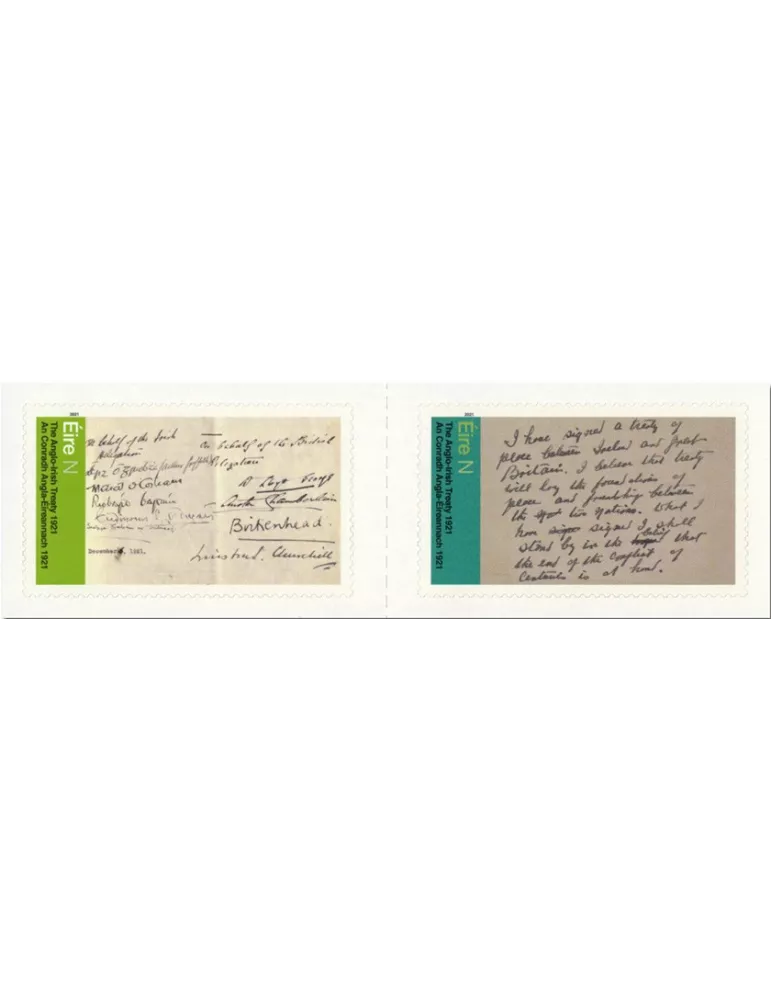 2021
Éire N
The Anglo-Irish Treaty 1921
An Conradh Angla-Éireannach 1921
On behalf of the Irish
delegation
On behalf of the British
Delegation
D Lloyd George
Austen Chamberlain
Birkenhead.
Winston S. Churchill
December 6, 1921.
2021
Éire N
The Anglo-Irish Treaty 1921
An Conradh Angla-Éireannach 1921
I have signed a treaty of
peace between Ireland and great
Britain. I believe that treaty
will lay the foundations of
peace and friendship between
the two Nations. What I
have signed I shall
stand by in the belief that
the end of the conflict of
Centuries is at hand.